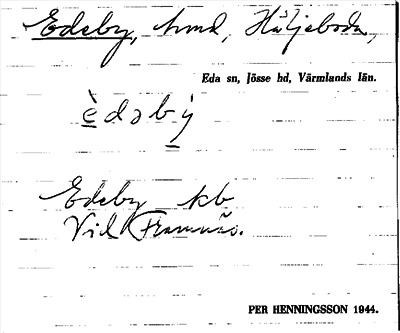 Edeby, hmd, Häljeboda,
Eda sn, Jösse hd, Värmlands län.
èdəbỳ
Edeby kb
Vid Framnäs.
PER HENNINGSSON 1944.